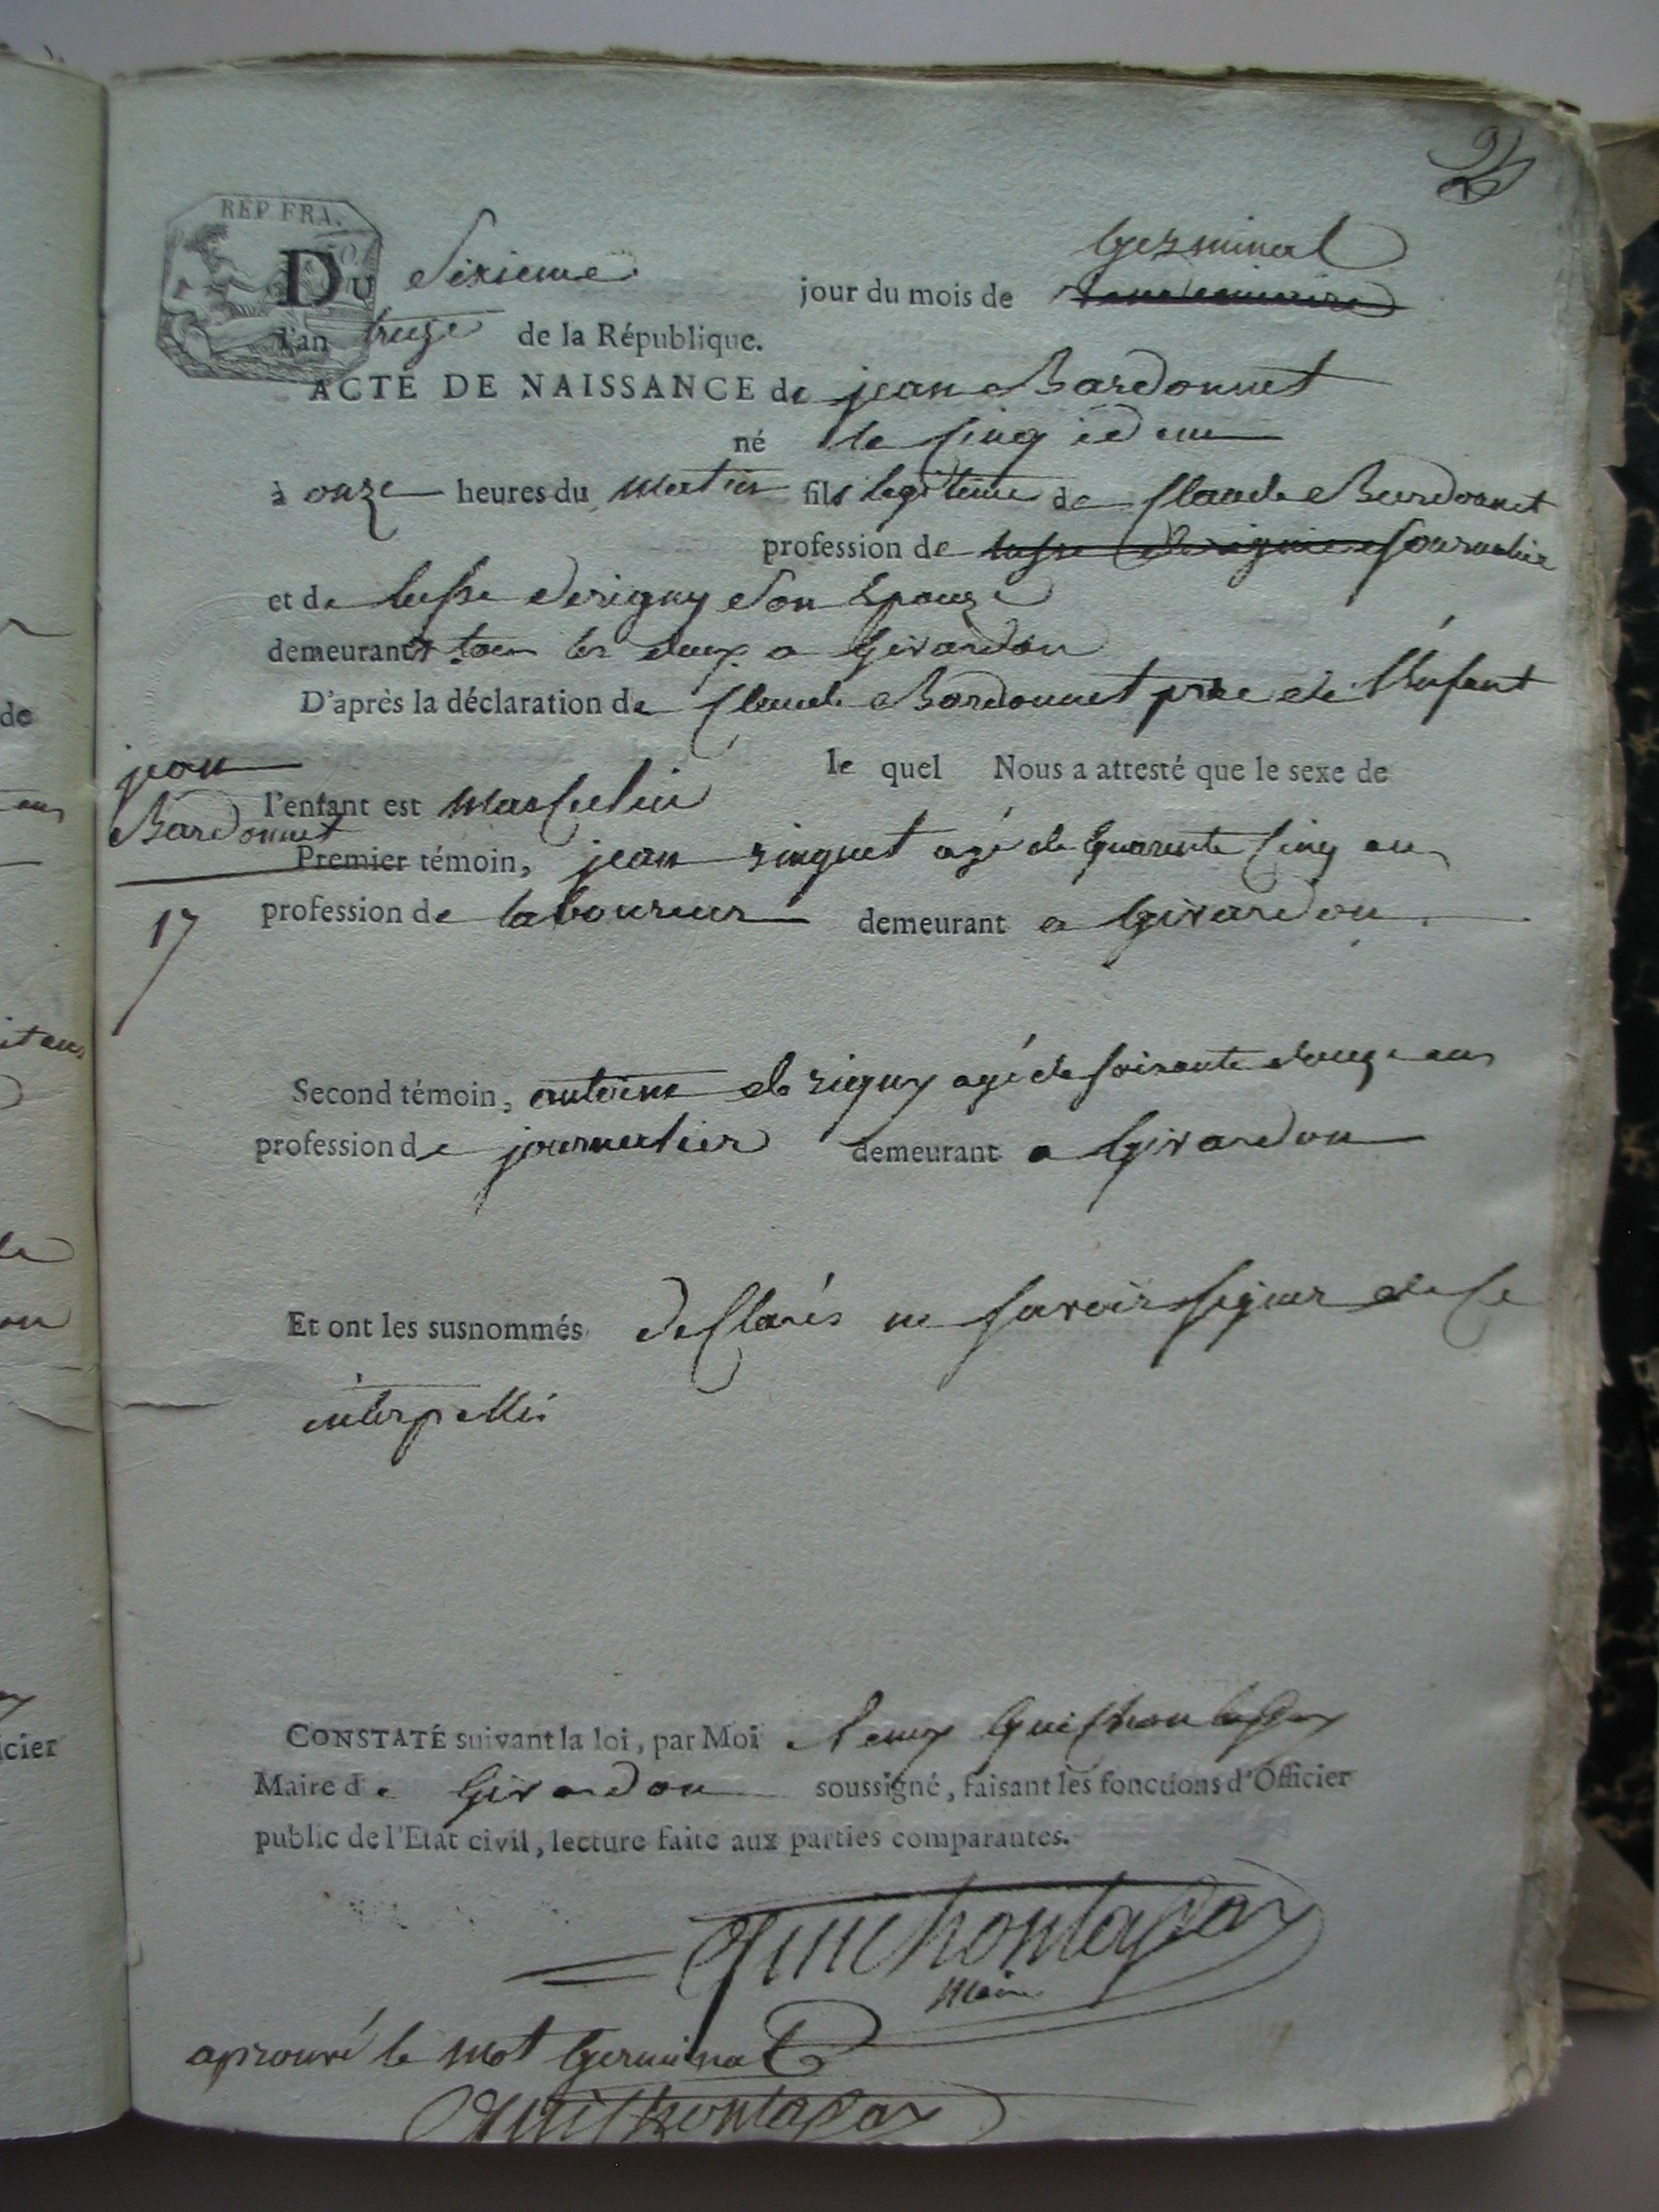 REP. FRA.
Germinal
Du Sixieme jour du mois de Vendemiaire
l'an treize de la République.
ACTE DE NAISSANCE de jean Bardonnet
né le cinq idem
à onze heures du matin fils legitime de Claude Bardonnet
profession de journalier
et de derigny son Epouze
demeurants tous les deux a Givardon
D'après la déclaration de Claude Bardonnet pere de l'Enfant
le quel Nous a attesté que le sexe de
jean
l'enfant est masculin
Bardonnet
Premier témoin, jean ringuet agé de quarente cinq ans
17
profession de laboureur demeurant a Givardon
Second témoin, antoine de rigny agé de soixante douze ans
profession de journalier demeurant a Givardon
Et ont les susnommés declarés ne savoir signer de ce
interpellés
CONSTATÉ suivant la loi, par Moi
Maire de Givardon soussigné, faisant les fonctions d'Officier
public de l'Etat civil, lecture faite aux parties comparantes.
maire
aprouvé le mot Germinal
de
icier